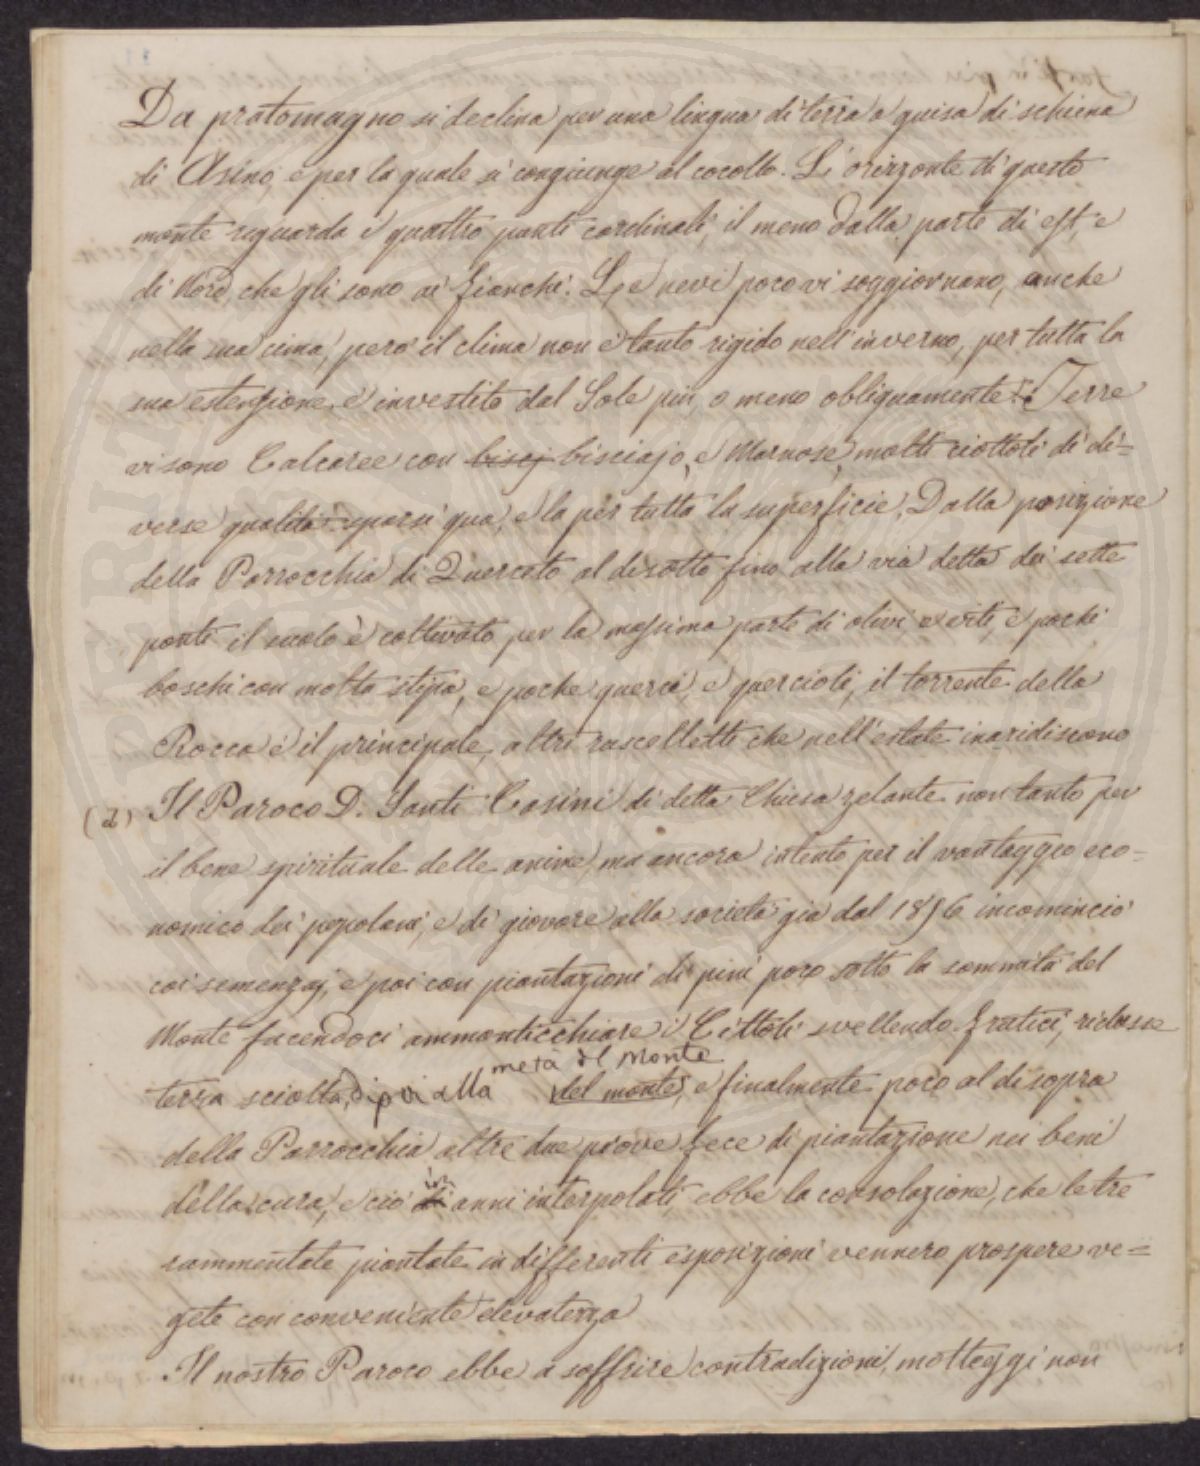 Da pratomagno si declina per una lingua di terra a guisa di schiena
di Asino, e per la quale si congiunge al cocollo. L'orizzonte di questo
monte riguarda i quattro punti cardinali, il meno dalla parte di est, e
di Nord, che gli sono ai fianchi. Le nevi poco vi soggiornano, anche
nella sua cima, però il clima non è tanto rigido nell'inverno, per tutta la
sua estensione è investito dal Sole più, o meno obliquamente. Terre
vi sono Calcaree con bisej bisciajo, e Marnose, molti ciottoli di di=
verse qualità sparsi qua, e la per tutta la superficie. Dalla posizione
della Parrocchia di Querceto al disotto fino alla via detta dei sette
ponti il suolo è coltivato per la massima parte di olivi e viti, e pochi
boschi con molta stipa, e poche querci, e quercioli, il torrente della
Rocca è il principale, altri ruscelletti che nell'estate inaridiscono
(2) Il Paroco D. Santi Casini di detta Chiesa zelante non tanto per
il bene spirituale delle anime, ma ancora intento per il vantaggio eco=
nomico dei popolani, e di giovare alla società già dal 1856 incominciò
coi semenzaj, e poi con piantazioni di pini poco sotto la sommità del
Monte facendoci ammonticchiare i Cittoli svellendo Frutici, ridusse
metà del Monte
terra sciolta, dipoi alla del monte, e finalmente poco al di sopra
della Parrocchia altre due prove fece di piantazione nei beni
in
della cura, e ciò di anni interpolati, ebbe la consolazione, che le tre
rammentate piantate in differenti esposizioni vennero prospere ve=
gete con conveniente elevatezza
Il nostro Paroco ebbe a soffrire contradizioni, motteggi non